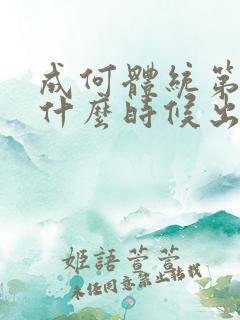 成何體統第
什麼時候出
姬語萱萱
未任同意禁止轉載